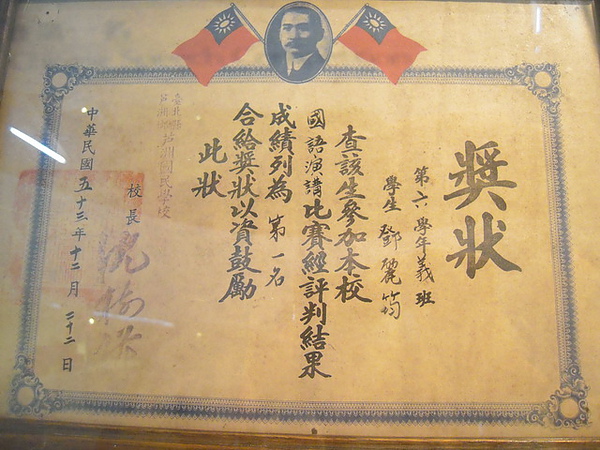 獎狀
第六學年義班
學生 鄧麗筠
查該生參加本校
國語演講比賽經評判結果
成績列為第一名
合給獎狀以資鼓勵
此狀
臺北縣
蘆洲鄉蘆洲國民學校
校長
中華民國五十三年十二月二十二日